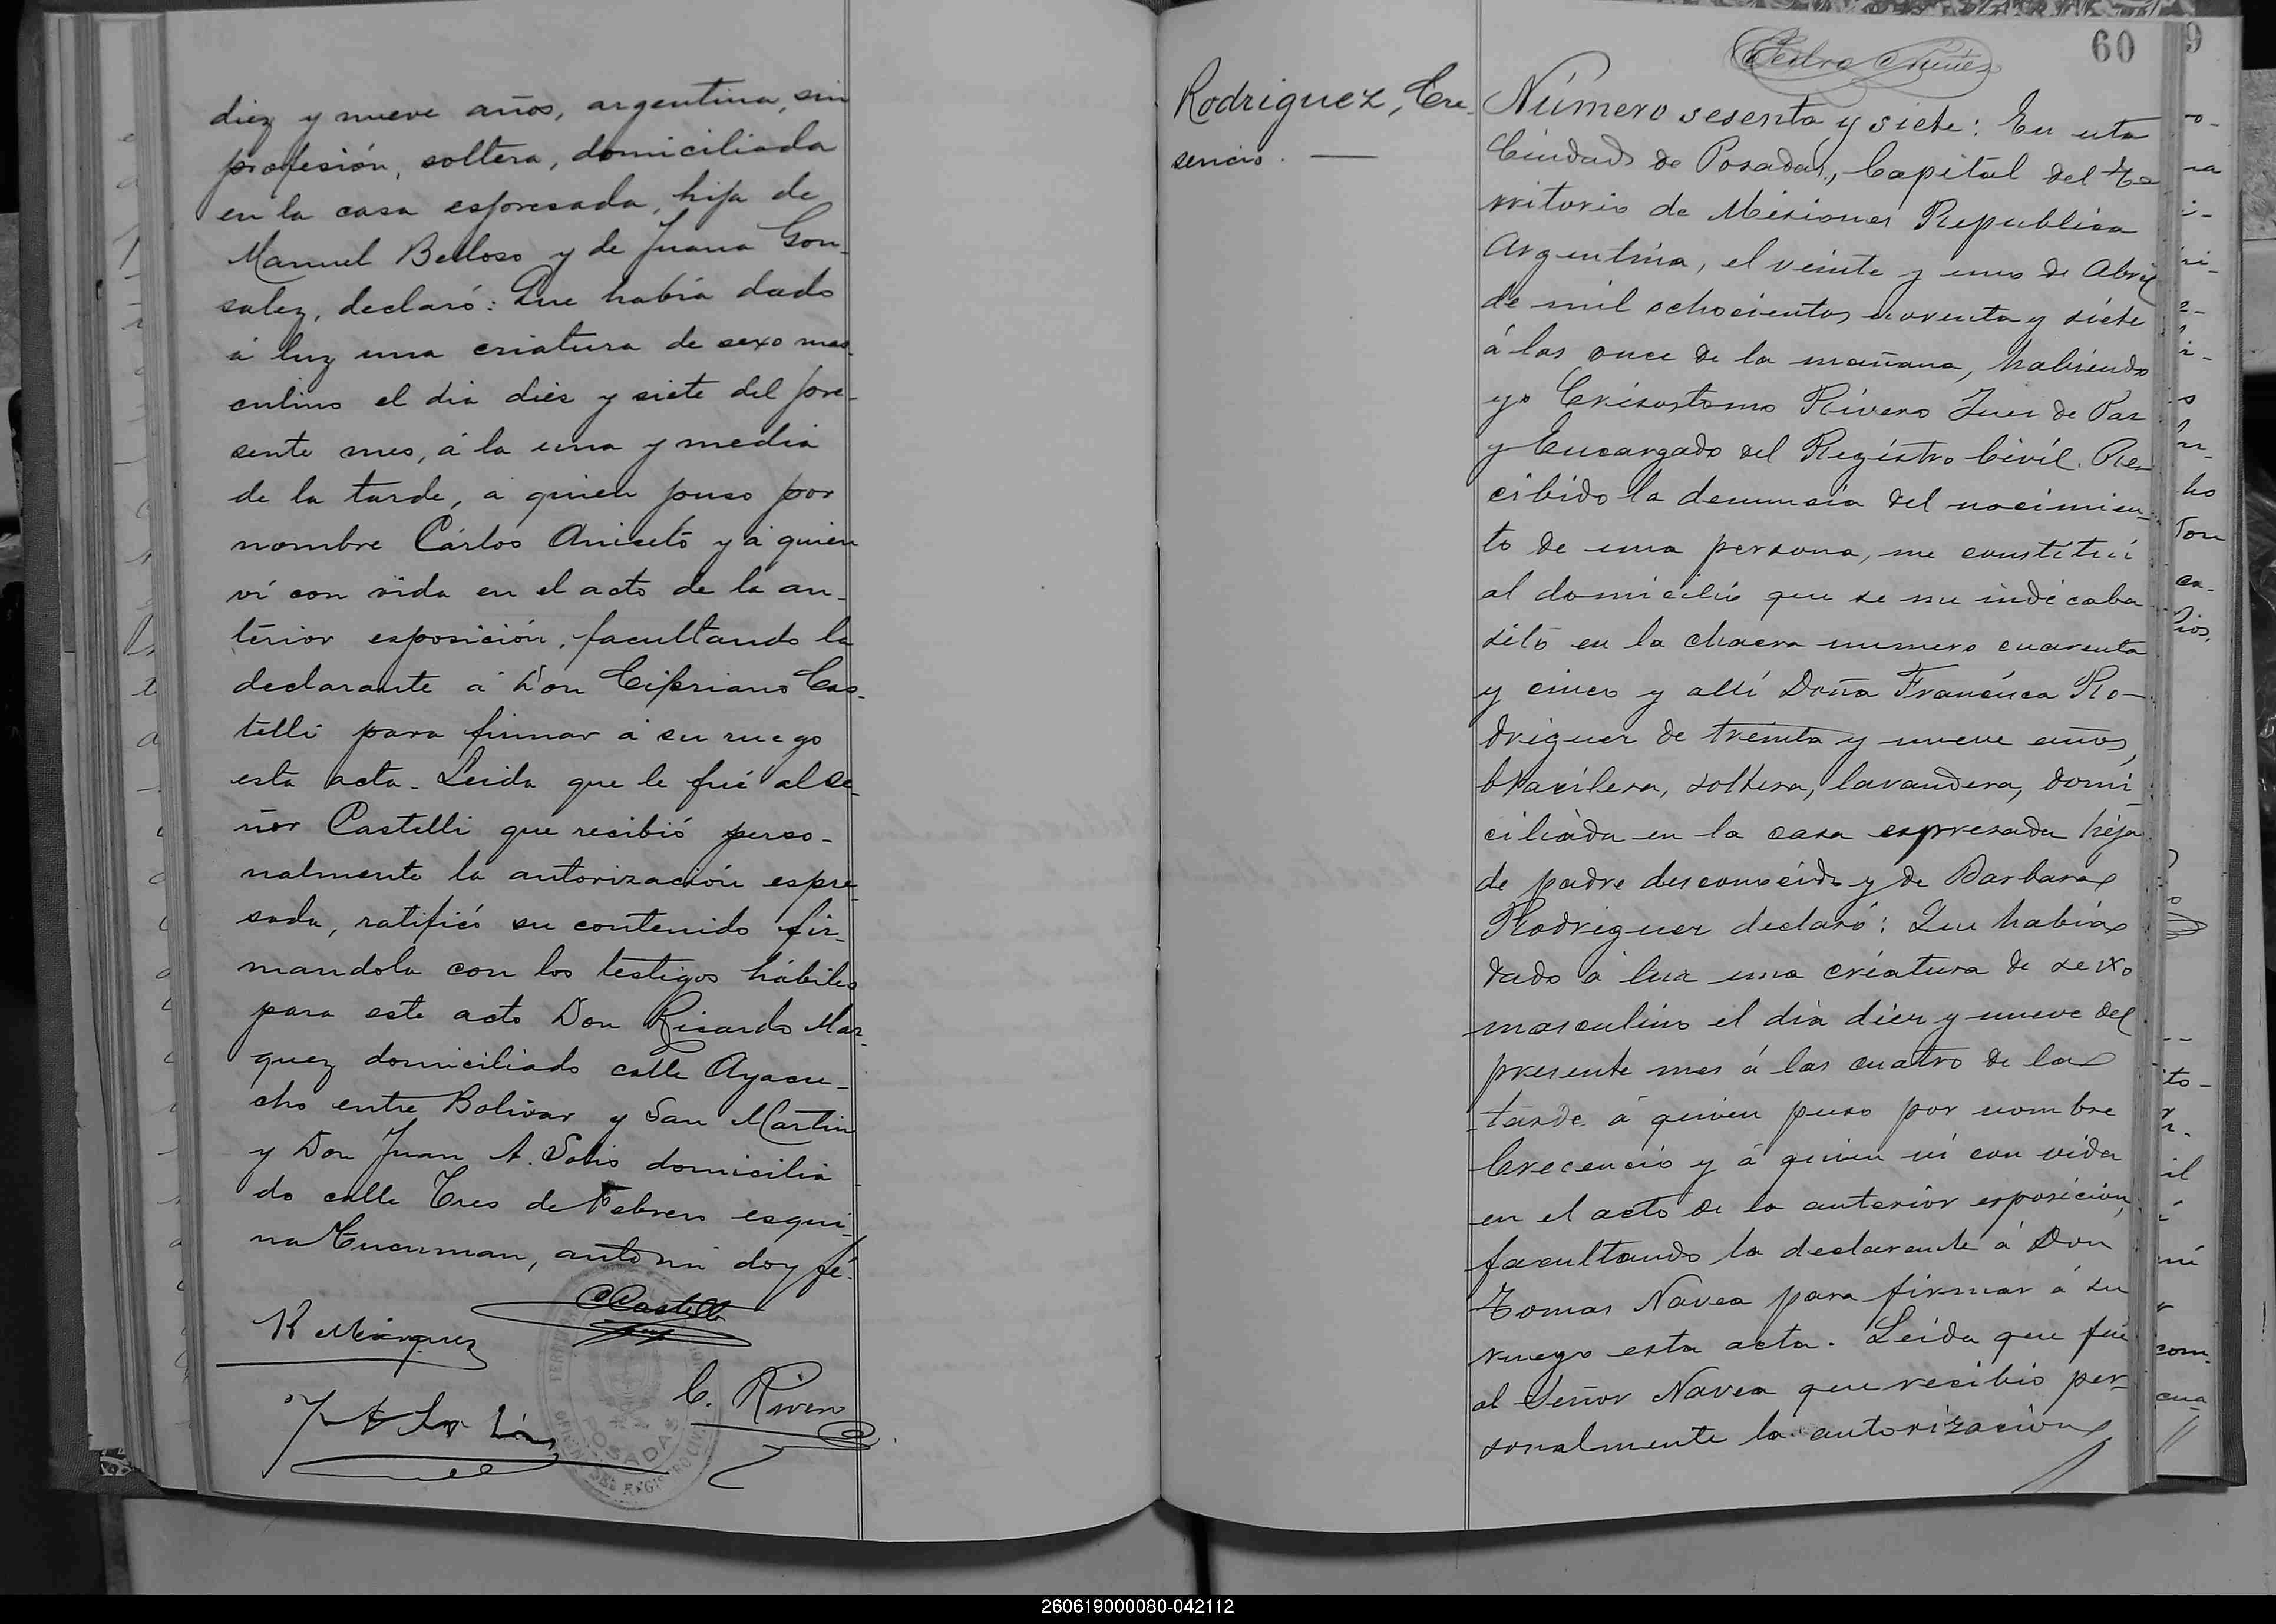 diez y nueve años, argentina, sin
profesión, soltera, domiciliada
en la casa espresada, hija de
Manuel Belloso y de Juana Gon-
salez, declaró: Que había dado
á luz una criatura de sexo mas-
culino el dia diez y siete del pre-
sente mes, á la una y media
de la tarde, a quien puso por
nombre Cárlos Aniceto y á quien
ví con vida en el acto de la an-
terior esposición, facultando la
declarante á Don Cipriano Cas-
telli para firmar á su ruego
esta acta. Leida que le fué al Se-
ñor Castelli que recibió perso-
nalmente la autorización espre
sada, ratificó su contenido fir-
mandola con los testigos hábiles
para este acto Don Ricardo Mar-
quez domiciliado calle Ayacu-
cho entre Bolivar y San Martin
y Don Juan A. Solis domicilia
do calle Tres de Febrero esqui-
na Tucuman, ante mi doy fé.
CCastelli
R Márquez
C. Rivero
POSADAS
REGISTRO CIVIL
Pedro Nuñez
60
9
Rodriguez, Cre-
sencio. —
Número sesenta y siete: En esta
Ciudad de Posadas, Capital del Te
rritorio de Misiones Republica
Argentina, el veinte y uno de Abril
de mil ochocientos noventa y siete
á las once de la mañana, habiendo
yo Crisostomo Rivero Juez de Paz
y Encargado del Registro Civil. Re-
cibido la denuncia del nacimien-
to de una persona, me constituí
al domicilio que se me indicaba
sito en la chacra numero cuarenta
y cinco y allí Doña Francisca Ro-
driguez de treinta y nueve años,
brasilera, soltera, lavandera, domi-
ciliada en la casa espresada hija
de padre desconocido y de Barbara
Rodriguez declaró: Que habia
dado á luz una criatura de sexo
masculino el dia diez y nueve del
presente mes á las cuatro de la
tarde á quien puso por nombre
Crecencio y á quien ví con vida
en el acto de la anterior esposicion,
facultando la declarante á Don
Tomas Navea para firmar á su
ruego esta acta. Leida que fué
al Señor Navea que recibió per-
sonalmente la autorizacion
260619000080-042112